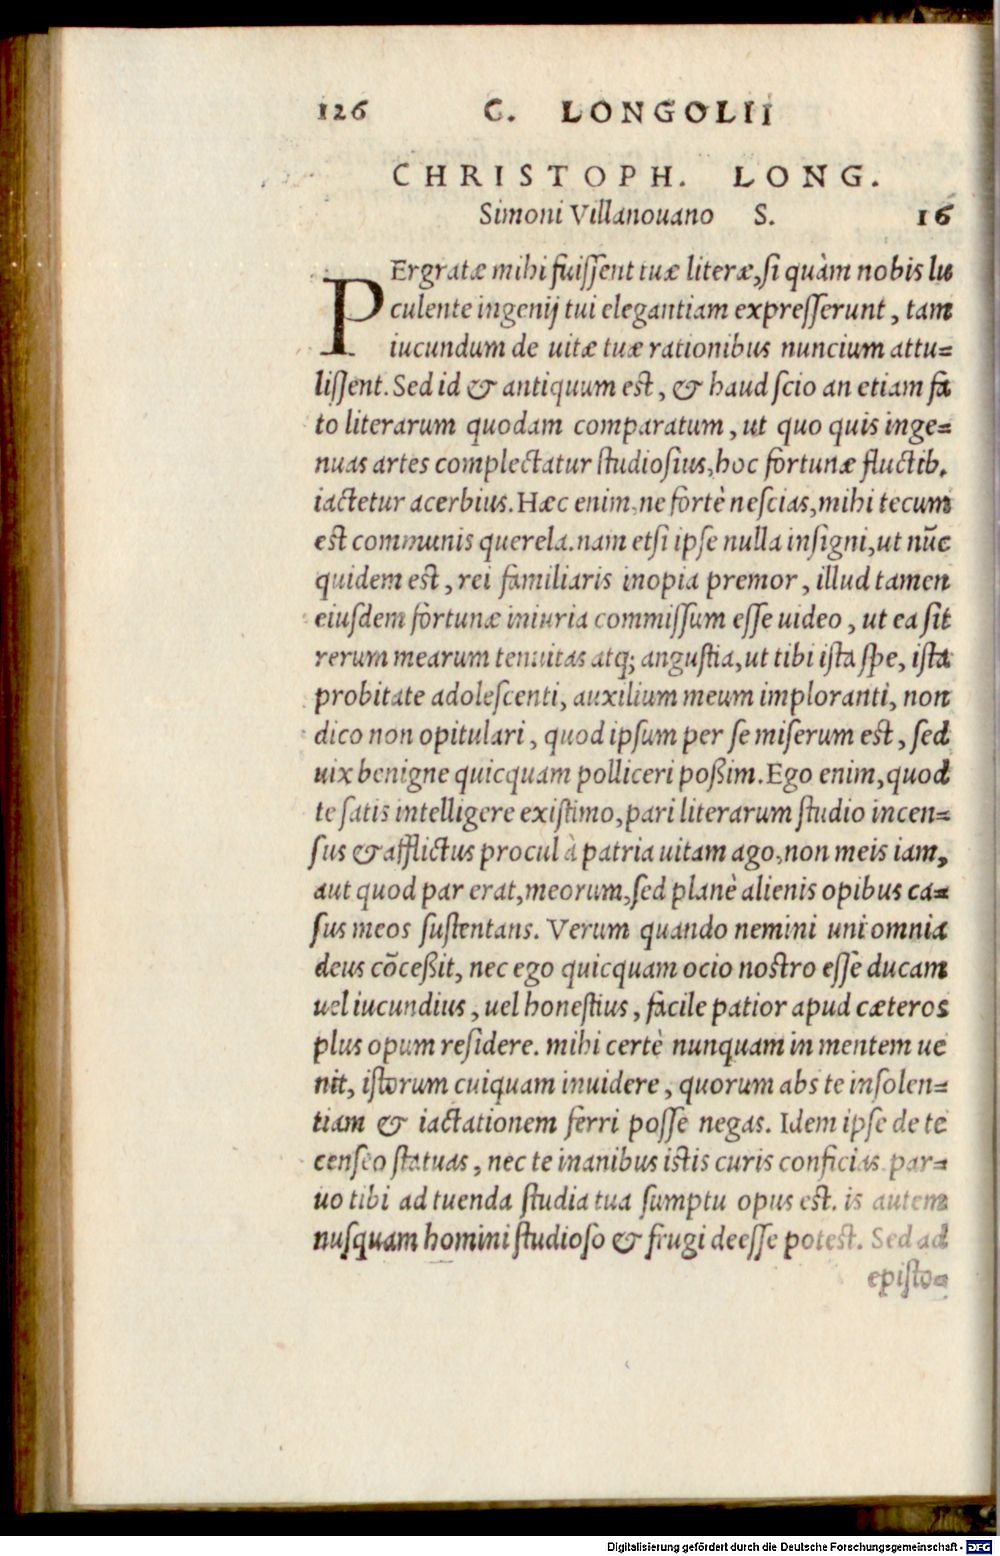 126 C. LONGOLII
CHRISTOPH. LONG.
Simoni Villanouano S. 16
PErgratæ mihi fuiſſent tuæ literæ, ſi quàm nobis lu
culente ingenij tui elegantiam expreſſerunt, tam
iucundum de uitæ tuæ rationibus nuncium attu=
liſſent. Sed id & antiquum est, & haud ſcio an etiam fa
to literarum quodam comparatum, ut quo quis inge=
nuas artes complectatur ſtudioſius, hoc fortunæ fluctib.
iactetur acerbius. Hæc enim, ne fortè neſcias, mihi tecum
est communis querela. nam etſi ipſe nulla inſigni, ut nūc
quidem est, rei familiaris inopia premor, illud tamen
eiuſdem fortunæ iniuria commiſſum eſſe uideo, ut ea ſit
rerum mearum tenuitas atq; anguſtia, ut tibi iſta ſpe, iſta
probitate adoleſcenti, auxilium meum imploranti, non
dico non opitulari, quod ipſum per ſe miſerum est, ſed
uix benigne quicquam polliceri poßim. Ego enim, quod
te ſatis intelligere exiſtimo, pari literarum ſtudio incen=
ſus & afflictus procul à patria uitam ago, non meis iam,
aut quod par erat, meorum, ſed planè alienis opibus ca=
ſus meos ſuſtentans. Verum quando nemini uni omnia
deus cōceßit, nec ego quicquam ocio nostro eſſe ducam
uel iucundius, uel honeſtius, facile patior apud cæteros
plus opum reſidere. mihi certè nunquam in mentem ue
nit, iſtorum cuiquam inuidere, quorum abs te inſolen=
tiam & iactationem ferri poſſe negas. Idem ipſe de te
cenſeo ſtatuas, nec te inanibus istis curis conficias. par=
uo tibi ad tuenda ſtudia tua ſumptu opus est. is autem
nuſquam homini ſtudioſo & frugi deeſſe potest. Sed ad
epiſto=
Digitalisierung gefördert durch die Deutsche Forschungsgemeinschaft - DFG